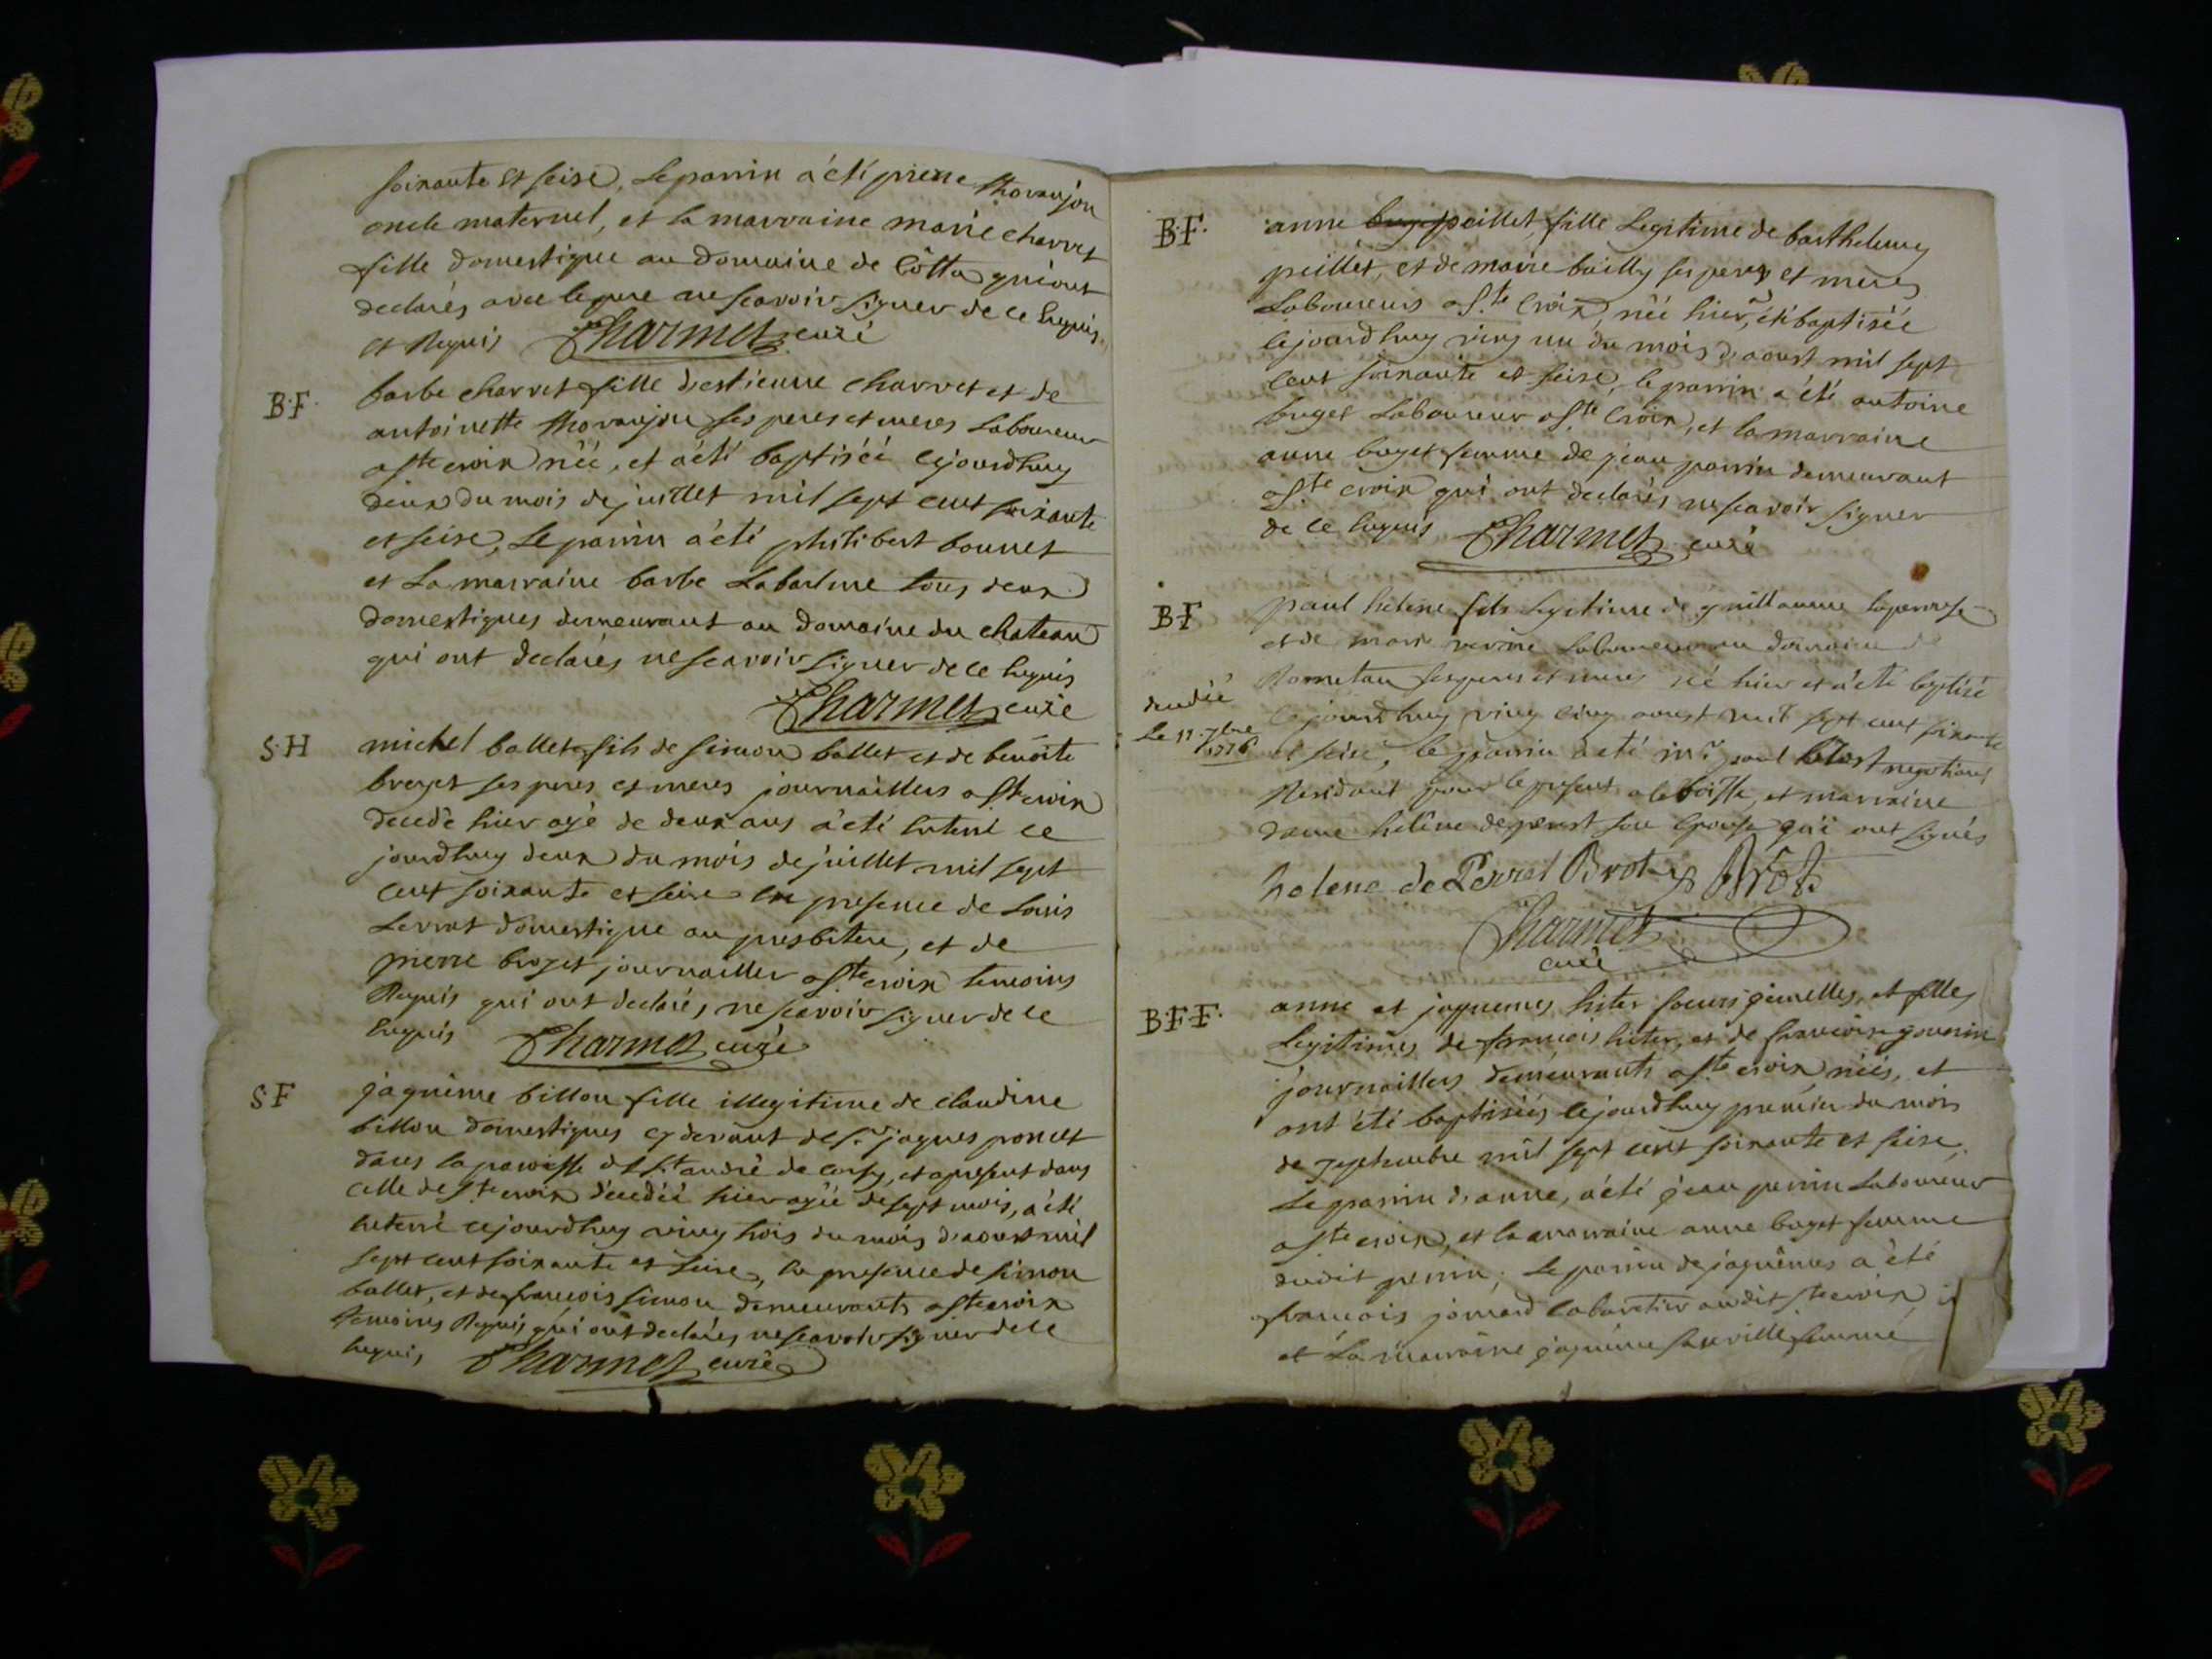 soixante et seise, le parrin a été pierre thoraujon
oncle maternel, et la marraine marie charvet
fille domestique au domaine de Côtta qui ont
declarés avec le pere ne scavoir signer de ce enquis
et Requis Charmet curé
B.F. barbe charvet fille d'estienne charvet et de
antoinette thoraujon ses peres et meres Laboureur
a ste croix née, et a été baptisée cejourdhuy
deux du mois de juillet mil sept cent soixante
et seise, Le parrin a été philibert bonnet
et La marraine barbe Labalme tous deux
domestiques demeurant au domaine du chateau
qui ont declarés ne scavoir signer de ce enquis
Charmet curé
S.H michel ballet fils de simon ballet et de benôite
broyet ses peres et meres journailliers a ste croix
decedé hier agé de deux ans a été enterré ce
jourdhuy deux du mois de juillet mil sept
cent soixante et seise en presence de Louis
Servat domestique au presbitere, et de
pierre broyet journaillier a ste croix temoins
Requis qui ont declarés ne scavoir signer de ce
enquis Charmet curé
S F jaquême billon fille illegitime de claudine
billon domestiques cy devant de sr jaques poncet
dans la paroisse de st andré de corsy, et apresent dans
celle de ste croix decedée hier agée de sept mois, a été
enterré cejourdhuy ving trois du mois d'aoust mil
sept cent soixante et seise, en presence de simon
ballet, et de francois simon demeurants a ste croix
temoins Requis qui ont declarés ne scavoir signer de ce
enquis, Charmet curé
B.F. anne peillet fille Legitime de barthelemy
peillet, et de marie bailly ses peres et meres
Laboureurs a Ste Croix, née hier, a été baptisée
cejourdhuy ving un du mois d'aoust mil sept
cent soixante et seise, le parrin a été antoine
buget Laboureur a Ste Croix, et la marraine
anne buget femme de jean parrin demeurant
a Ste croix qui ont declarés ne scavoir signer
de ce enquis Charmet curé
B.F paul helene fils Legitime de guillaume laperouse
et de marie Laboureur au domaine de
Rometan ses peres et meres né hier et a été baptisé
cejourdhuy ving cinq aoust mil sept cent soixante
Le 11 7bre 1776
et seise, le parrin a été mr paul Brost negotiant
Residant pour le present a la boisse, et marraine
dame hélène de perret son epouse qui ont signés
helene de Perret Brot Brot
Charmet
curé
B.F.F. anne et jaquemes hiter soeurs jumelles, et filles
Legitimes de francois hiter, et de francoise gounin
journailliers demeurants a Ste croix, nées, et
ont été baptisées cejourdhuy premier du mois
de 7eptembre mil sept cent soixante et seise,
Le parrin d'anne, a été jean perrin Laboureur
a Ste croix, et la marraine anne buget femme
dudit perrin; Le parrin de jaquêmes a été
francois jomard cabaretier audit Ste croix,
et La marraine jaquême femme